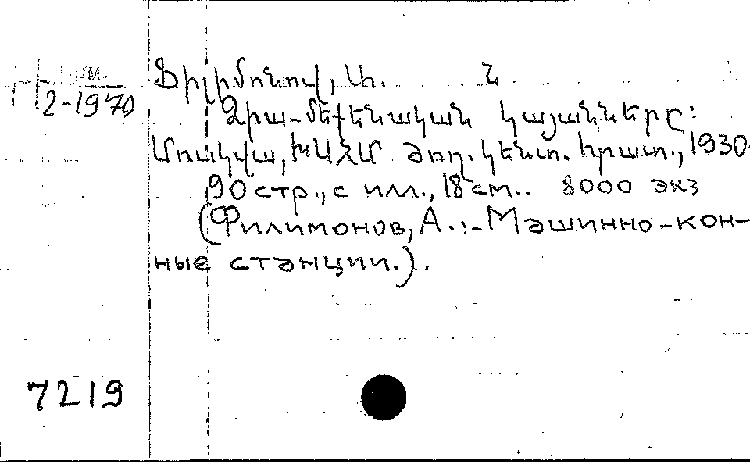 2-1970
Ֆիլիմոնով, Ա. Ն
Ձիա-մեքենական կայանները:
Մոսկվա, ԽՍՀՄ ժող. կենտ. հրատ., 1930.
90 стр., с илл., 18 см.. 8000 экз
(Филимонов, А.:-Машинно-кон-
ные станции.).
7219